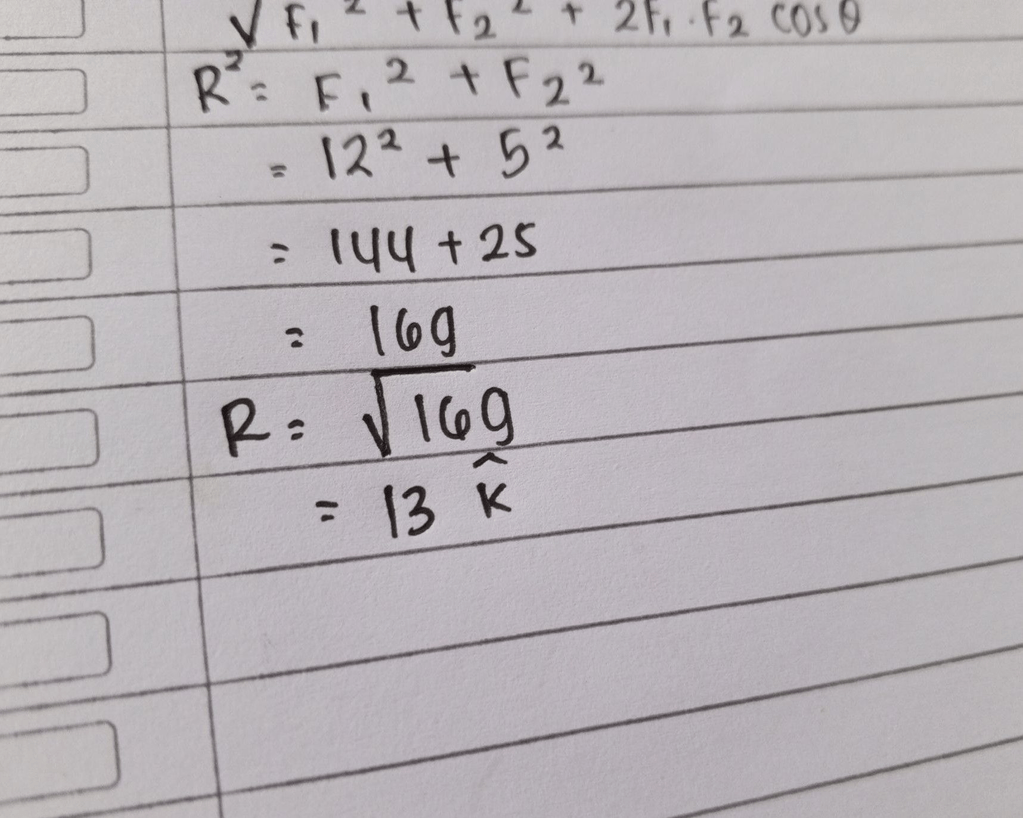 √F₁² + F₂² + 2F₁·F₂ cos θ
R² = F₁² + F₂²
= 12² + 5²
= 144 + 25
= 169
R = √169
= 13 k̂